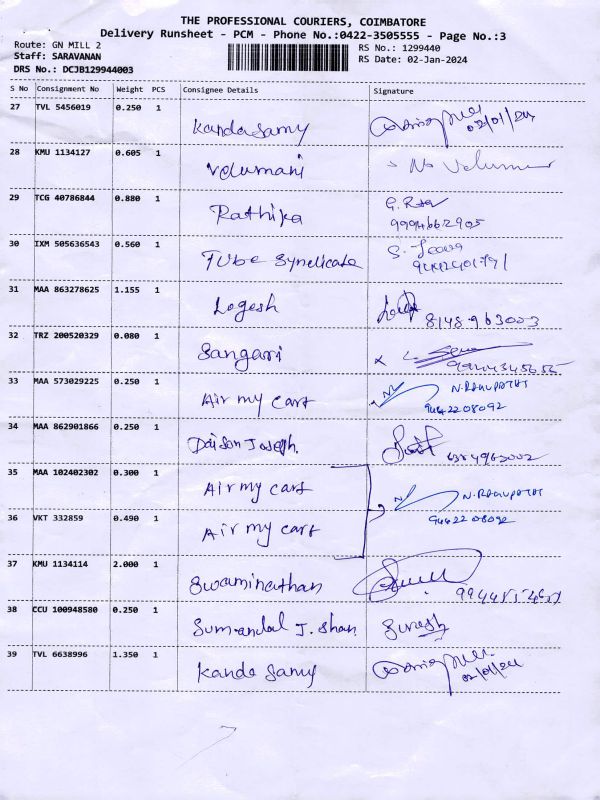 THE PROFESSIONAL COURIERS, COIMBATORE
Delivery Runsheet - PCM - Phone No.:0422-3505555 - Page No.:3
Route: GN MILL 2
RS No.: 1299440
Staff: SARAVANAN
RS Date: 02-Jan-2024
DRS No.: DCJB129944003
S No Consignment No Weight PCS Consignee Details Signature
27 TVL 5456019 0.250 1 Kandasamy 02/01/24
28 KMU 1134127 0.605 1 Velumani
29 TCG 40786844 0.880 1 Rathika
9994662905
30 IXM 505636543 0.560 1 Tube Syndicate
31 MAA 863278625 1.155 1 Logesh 8148963003
32 TRZ 200520329 0.080 1 Sangari
33 MAA 573029225 0.250 1 Air my cart N. RAGUPATHI
9442208092
34 MAA 862901866 0.250 1 Daison Joseph.
35 MAA 102402302 0.300 1 Air my cart N. RAGUPATHI
9442208092
36 VKT 332859 0.490 1 Air my cart
37 KMU 1134114 2.000 1 Swaminathan
38 CCU 100948580 0.250 1 J. Shan Suresh
39 TVL 6638996 1.350 1 Kanda Samy 02/01/24